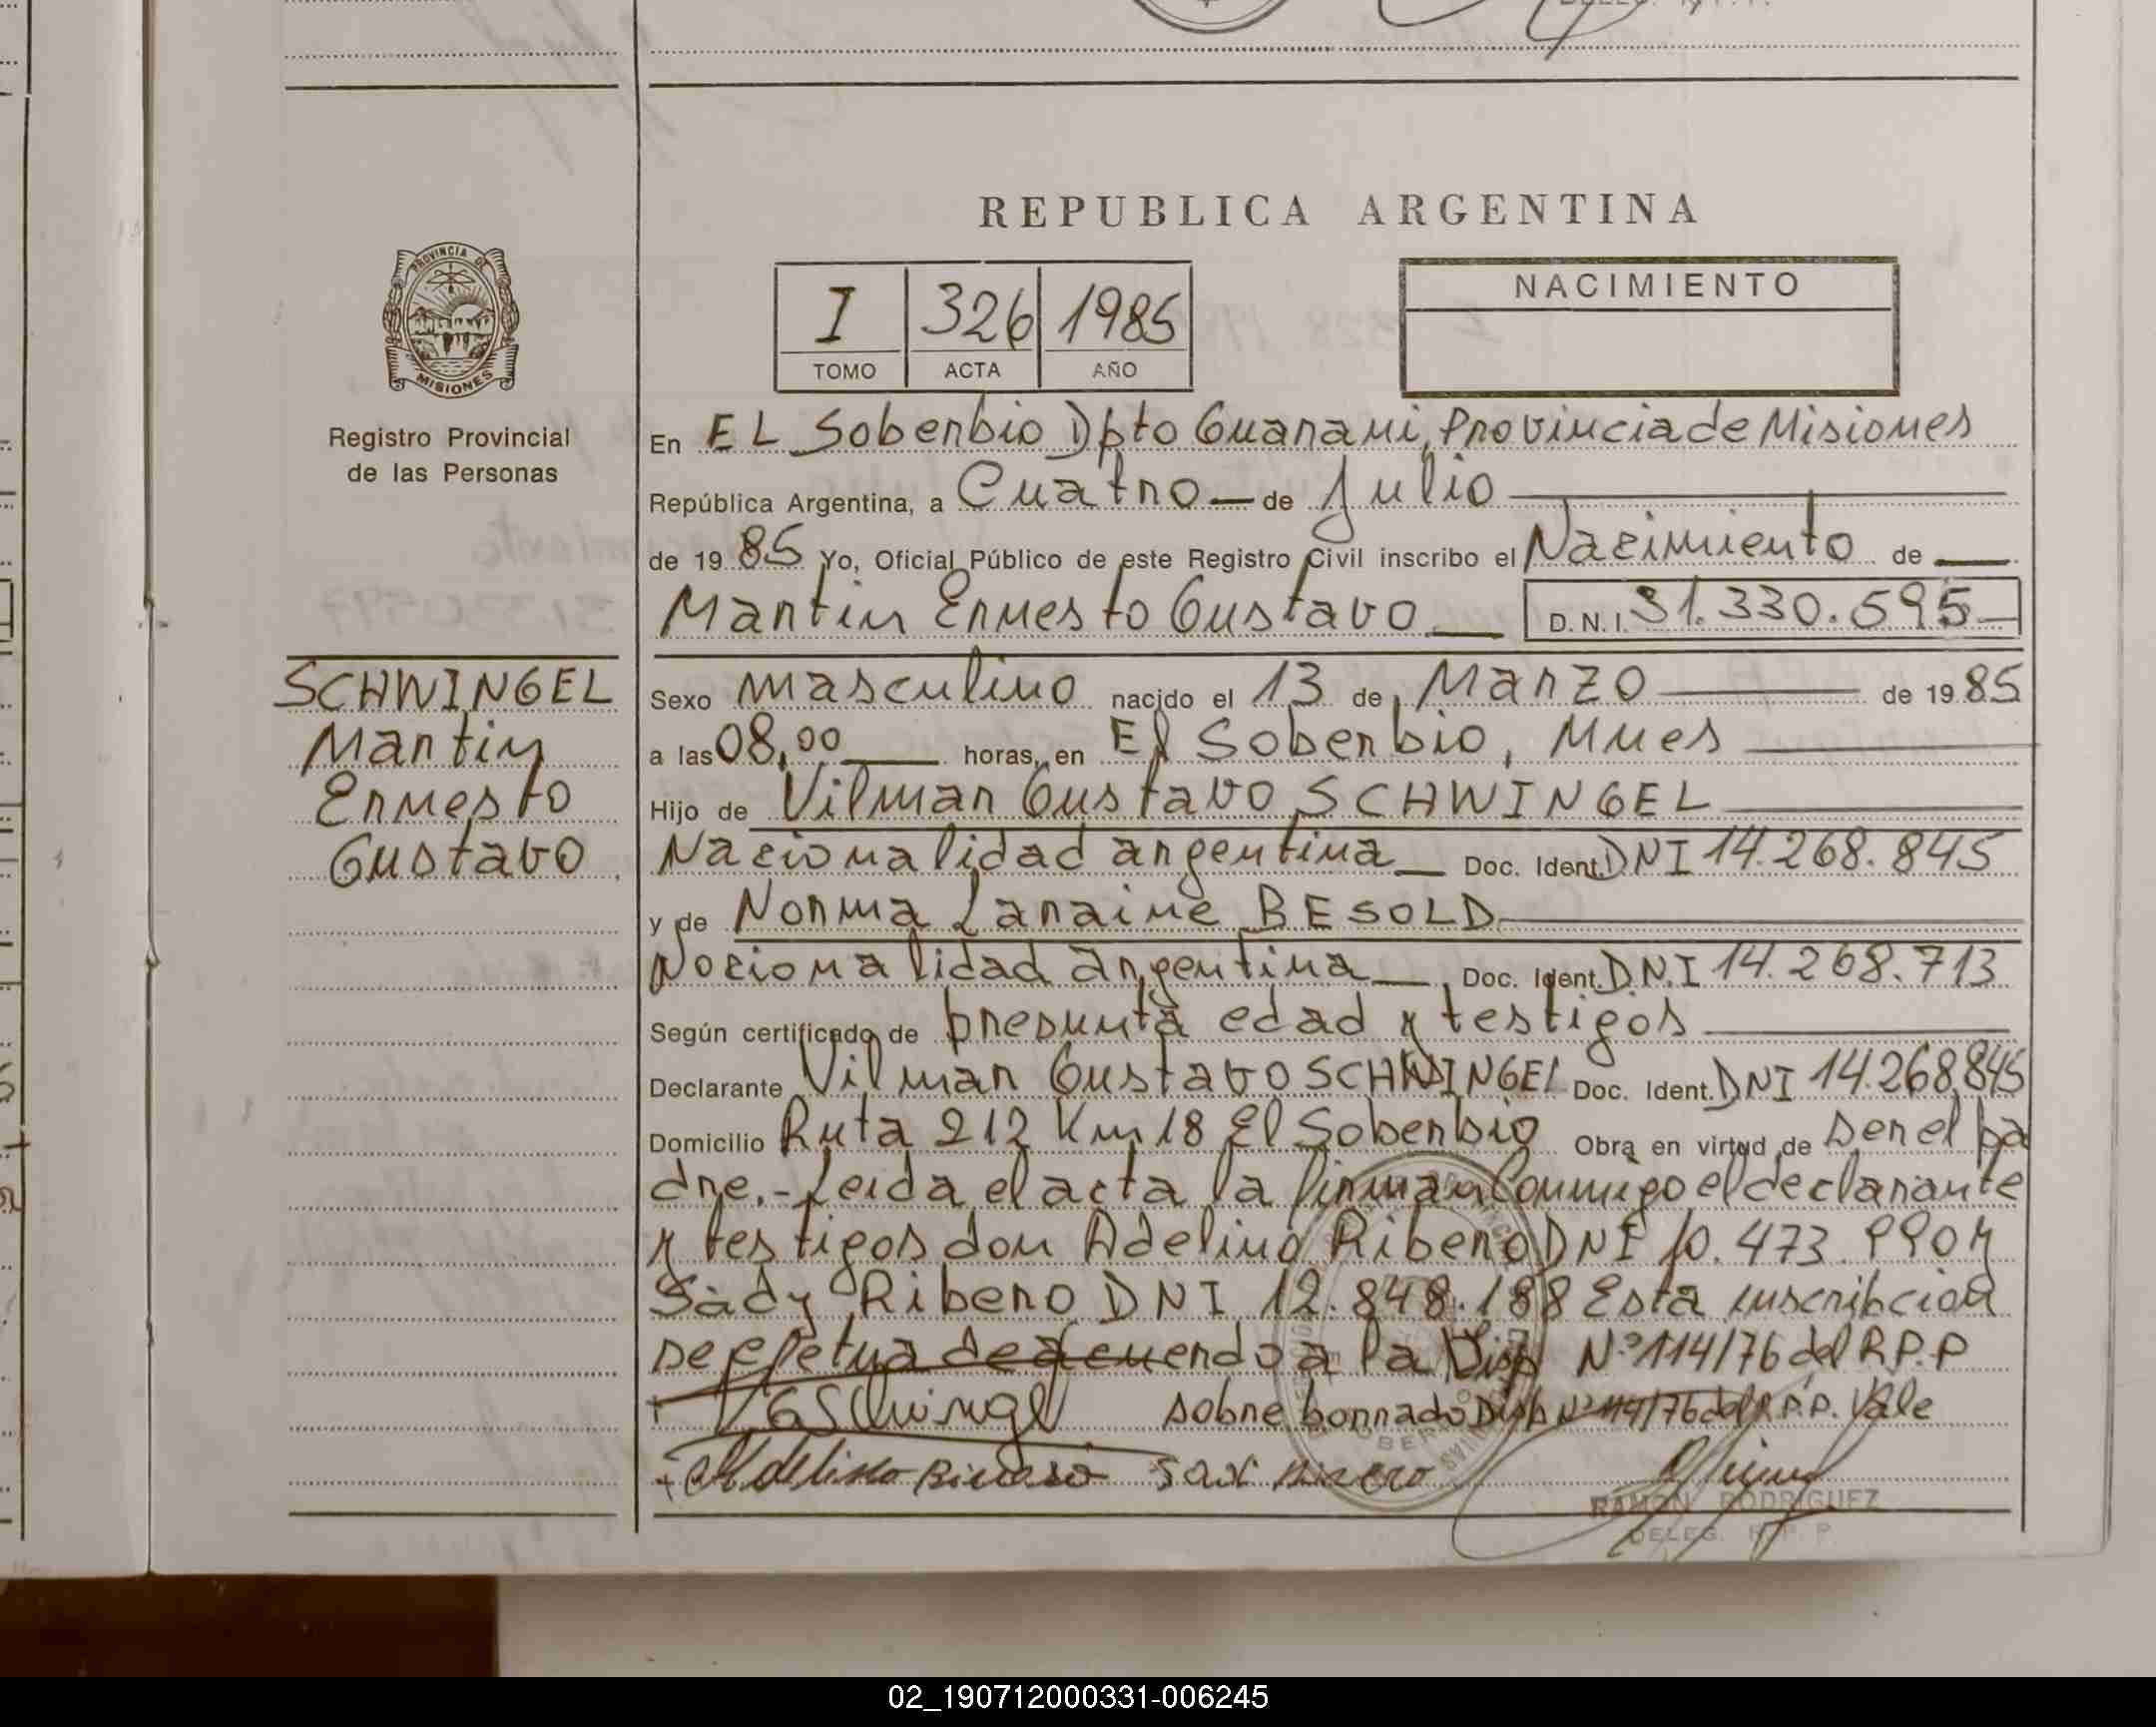 REPUBLICA ARGENTINA
PROVINCIA DE
MISIONES
Registro Provincial
de las Personas
I 326 1985
TOMO ACTA AÑO
NACIMIENTO
En EL Soberbio Dpto Guarani, Provincia de Misiones
República Argentina, a Cuatro — de Julio
de 19 85 Yo, Oficial Público de este Registro Civil inscribo el Nacimiento de —
Martin Ernesto Gustavo — D.N.I. 31.330.595
SCHWINGEL
Martin
Ernesto
Gustavo
Sexo masculino nacido el 13 de Marzo — de 19 85
a las 08,00 — horas, en El Soberbio, Mnes
Hijo de Vilmar Gustavo SCHWINGEL
Nacionalidad argentina — Doc. Ident. DNI 14.268.845
y de Norma Laraine BESOLD
Nacionalidad argentina — Doc. Ident. D.N.I 14.268.713
Según certificado de presunta edad y testigos
Declarante Vilmar Gustavo SCHWINGEL Doc. Ident. DNI 14.268.845
Domicilio Ruta 212 Km 18 El Soberbio Obra en virtud de ser el pa
dre.- Leida el acta la firman Conmigo el declarante
y testigos don Adelino Ribero DNI 10.473.990 y
Sady Ribero DNI 12.848.188 Esta inscripcion
se efetua de acuerdo a la Disp Nº 114/76 del R.P.P
sobre borrado Disp Nº 114/76 del R.P.P. Vale
RAMON RODRIGUEZ
DELEG. R. P. P.
02_190712000331-006245